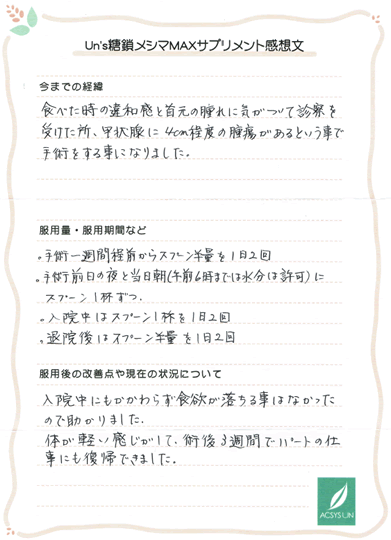 Un's糖鎖メシマMAXサプリメント感想文
今までの経緯
食べた時の違和感と首元の腫れに気がついて診察を
受けた所、甲状腺に4cm程度の腫瘍があるという事で
手術をする事になりました。
服用量・服用期間など
。手術一週間程前からスプーン半量を1日2回
。手術前日の夜と当日朝(午前6時までは水分は許可)に
スプーン1杯ずつ.
。入院中はスプーン1杯を1日2回
。退院後はスプーン半量を1日2回
服用後の改善点や現在の状況について
入院中にもかかわらず食欲が落ちる事はなかった
ので助かりました.
体が軽い感じがして、術後3週間でパートの仕
事にも復帰できました。
ACSYSUN